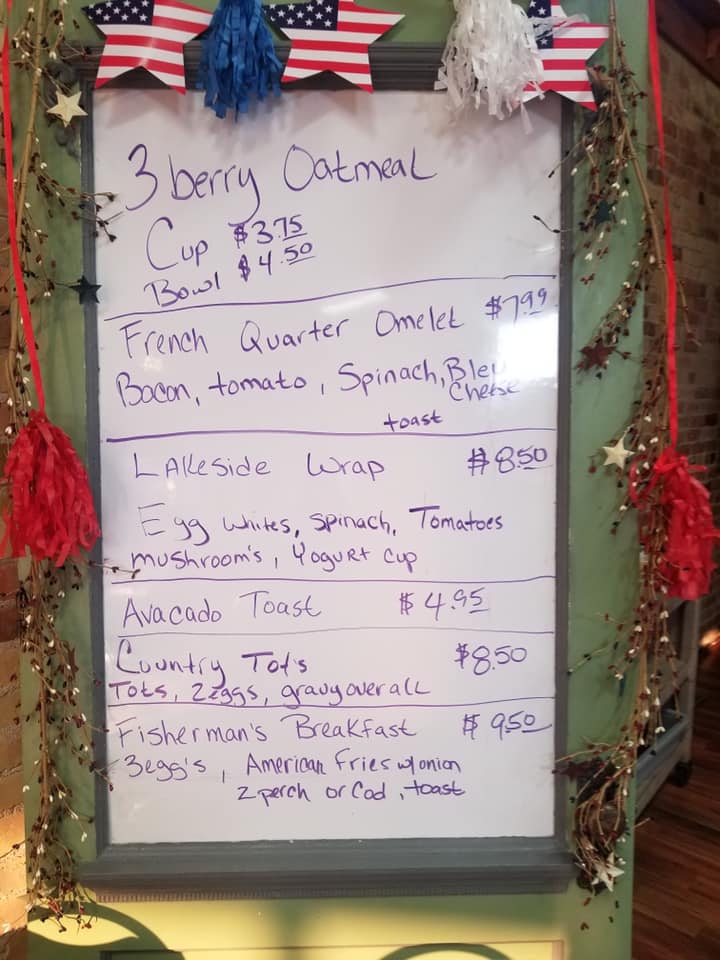 3 berry Oatmeal
Cup $3.75
Bowl $4.50
French Quarter Omelet $7.99
Bacon, tomato, Spinach, Bleu
Cheese
toast
Lakeside Wrap $8.50
Egg whites, spinach, Tomatoes
mushroom's, Yogurt cup
Avacado Toast $4.95
Country Tot's $8.50
Tots, 2 eggs, gravy over all
Fisherman's Breakfast $9.50
3 egg's, American Fries w/onion
2 perch or Cod, toast